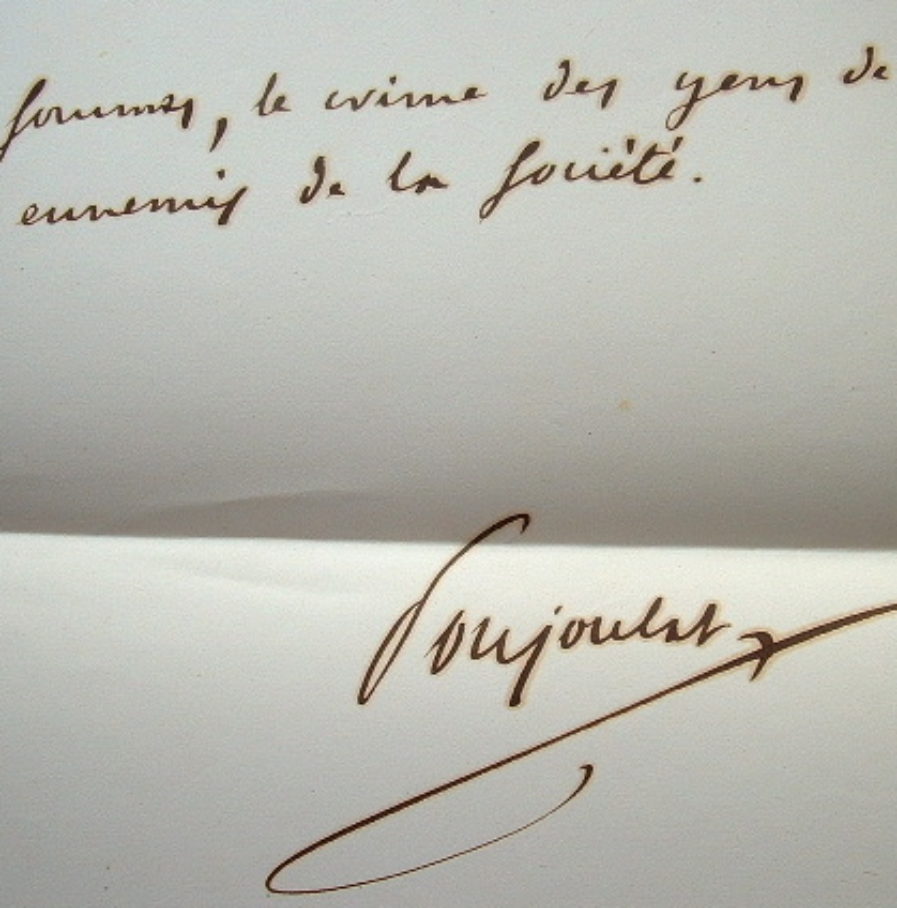 sommes, le crime des gens de
ennemis de la société.
Poujoulat